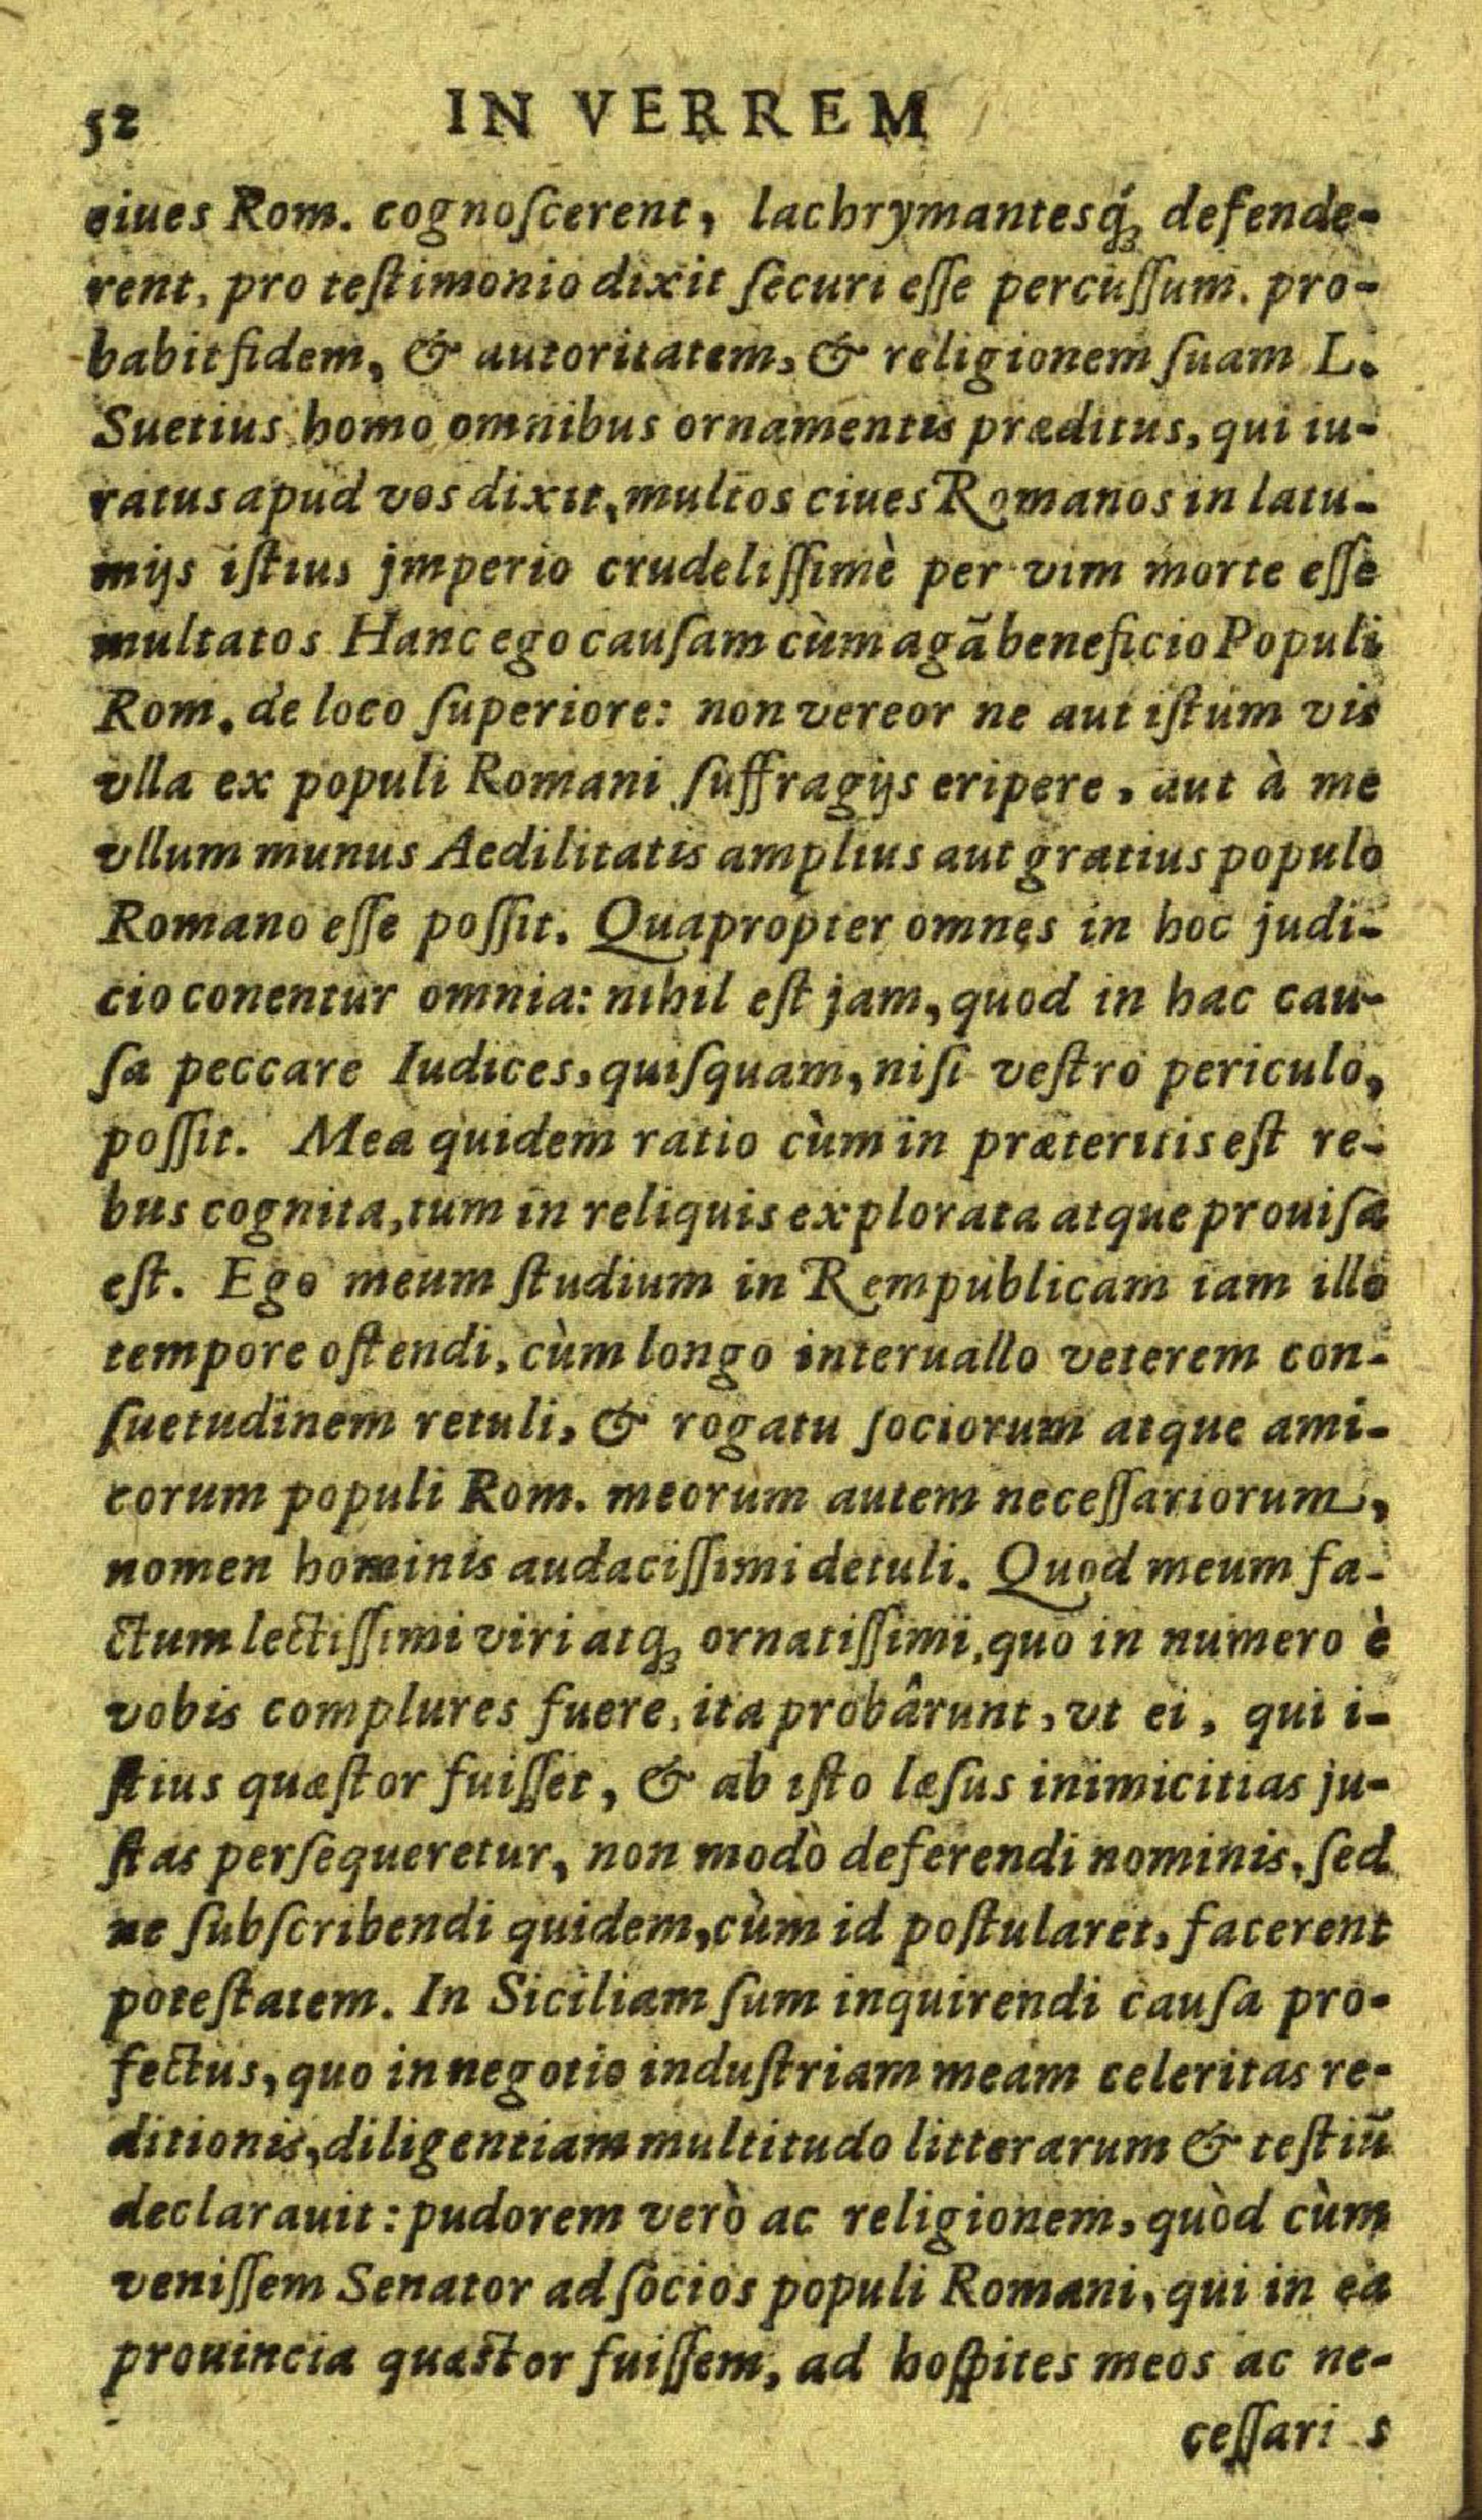 52 IN VERREM
ciues Rom. cognoſcerent, lachrymantesq́; defende-
rent, pro teſtimonio dixit ſecuri eſſe percuſſum. pro-
babit fidem, & autoritatem, & religionem ſuam L.
Suetius homo omnibus ornamentis præditus, qui iu-
ratus apud vos dixit, multos ciues Romanos in latu-
mijs iſtius jmperio crudeliſſimè per vim morte eſſe
multatos Hanc ego cauſam cùm agã beneficio Populi
Rom. de loco ſuperiore: non vereor ne aut iſtum vis
vlla ex populi Romani ſuffragijs eripere, aut à me
vllum munus Aedilitatis amplius aut gratius populo
Romano eſſe poſſit. Quapropter omnes in hoc judi-
cio conentur omnia: nihil eſt jam, quod in hac cau-
ſa peccare Iudices, quiſquam, niſi veſtro periculo,
poſſit. Mea quidem ratio cùm in præteritis eſt re-
bus cognita, tum in reliquis explorata atque prouiſa
eſt. Ego meum ſtudium in Rempublicam iam illo
tempore oſtendi, cùm longo interuallo veterem con-
ſuetudinem retuli, & rogatu ſociorum atque ami-
corum populi Rom. meorum autem neceſſariorum,
nomen hominis audaciſſimi detuli. Quod meum fa-
ctum lectiſſimi viri atq; ornatiſſimi, quo in numero è
vobis complures fuere, ita probârunt, vt ei, qui i-
ſtius quæſtor fuiſſet, & ab iſto læſus inimicitias ju-
ſtas perſequeretur, non modò deferendi nominis, ſed
ne ſubſcribendi quidem, cùm id poſtularet, facerent
poteſtatem. In Siciliam ſum inquirendi cauſa pro-
fectus, quo in negotio induſtriam meam celeritas re-
ditionis, diligentiam multitudo litterarum & teſtiũ
declarauit: pudorem verò ac religionem, quòd cùm
veniſſem Senator ad ſocios populi Romani, qui in ea
prouincia quæſtor fuiſſem, ad hoſpites meos ac ne-
ceſſari s